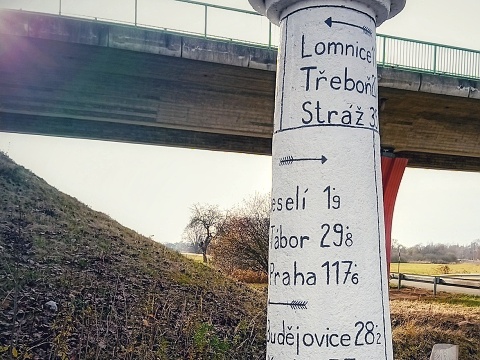 Lomnice
Třeboň
Stráž 3
eselí 1 9
Tábor 29 8
Praha 117 6
udějovice 28 2